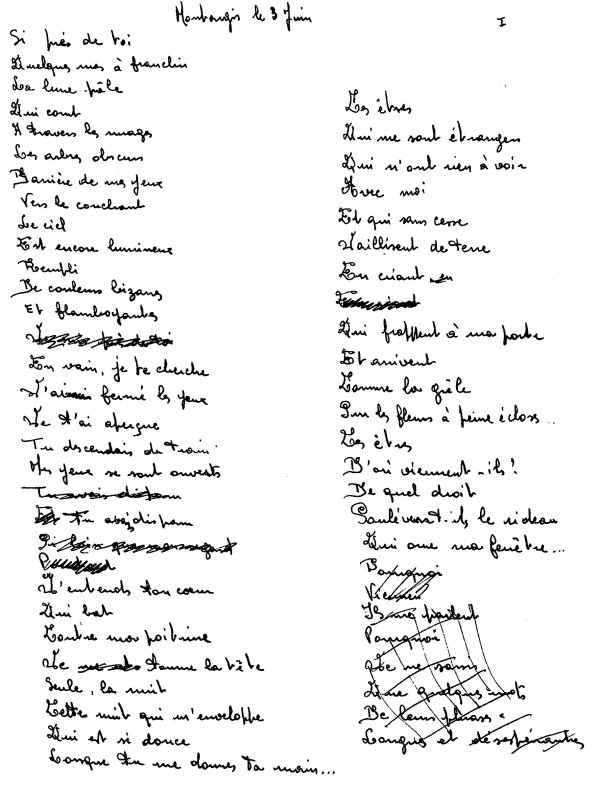 Montargis le 3 Juin
I
Si près de toi
Quelques à franchir
La lune pâle
Qui court
A travers les nuages
Les arbres obscurs
Barière de mes yeux
Vers le couchant
Le ciel
Est encore lumineux
Rempli
De couleurs bizares
Et flamboyantes
En vain, je te cherche
J'ai fermé les yeux
Je t'ai aperçue
Tu descendais du train
Mes yeux se sont ouverts
Tu avais disparu
Tu avais disparu
J'entends ton cœur
Qui bat
Contre ma poitrine
Je tourne la tête
Seule, la nuit
Cette nuit qui m'enveloppe
Qui est si douce
Lorsque tu me donnes ta main...
Les êtres
Qui me sont étrangers
Qui n'ont rien à voir
Avec moi
Et qui sans cesse
Jaillissent de terre
En criant en
Qui frappent à ma porte
Et arrivent
Comme la grêle
Sur les fleurs à peine écloses..
Les êtres
D'où viennent-ils!
De quel droit
Soulèvent-ils le rideau
Qui orne ma fenêtre...
Pourquoi
Ils me parlent
Pourquoi
Je ne sais
Que quelques mots
De leurs phrases
Longues et désespérantes